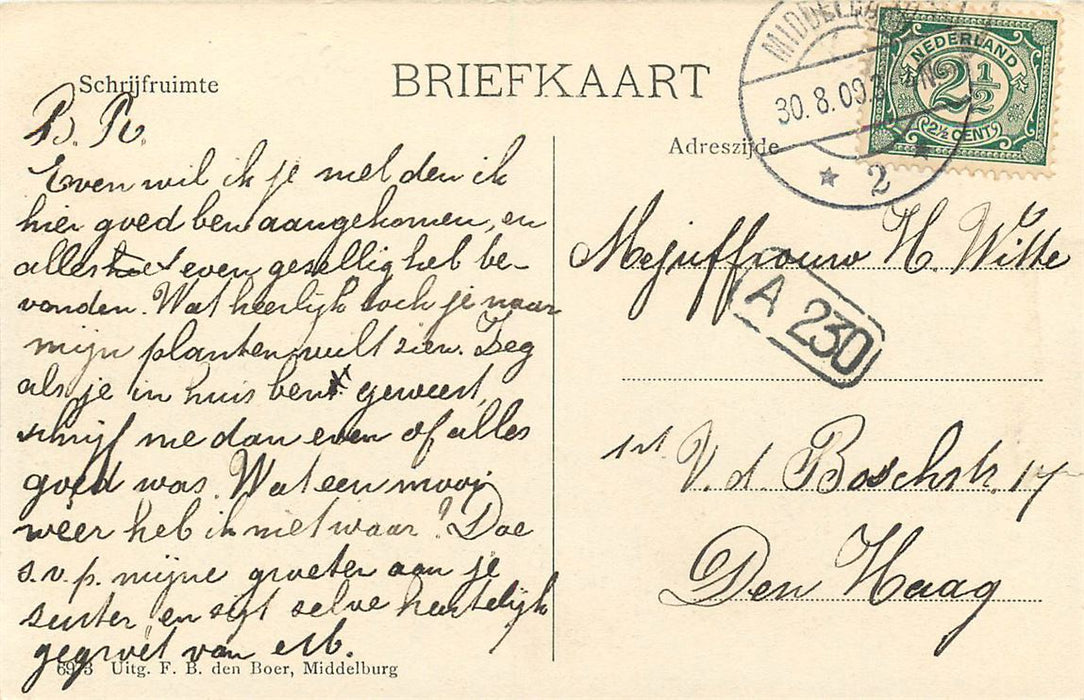 Schrijfruimte
BRIEFKAART
Adreszijde
MIDDELBURG
30.8.09.
2
NEDERLAND
2½
2½ CENT
B. R.
Even wil ik je melden ik
hier goed ben aangekomen, en
alles even gezellig heb be-
vonden. Wat heerlijk toch je naar
mijn planten wilt zien. Zeg
als je in huis bent geweest,
schrijf me dan even of alles
goed was. Wat een mooi
weer heb ik niet waar? Doe
s.v.p. mijne groeten aan je
zuster, en zijt zelve hartelijk
gegroet van
Mejuffrouw H. Witte
A 230
1ste V. d. Boschstr. 17
Den Haag
6973 Uitg. F. B. den Boer, Middelburg